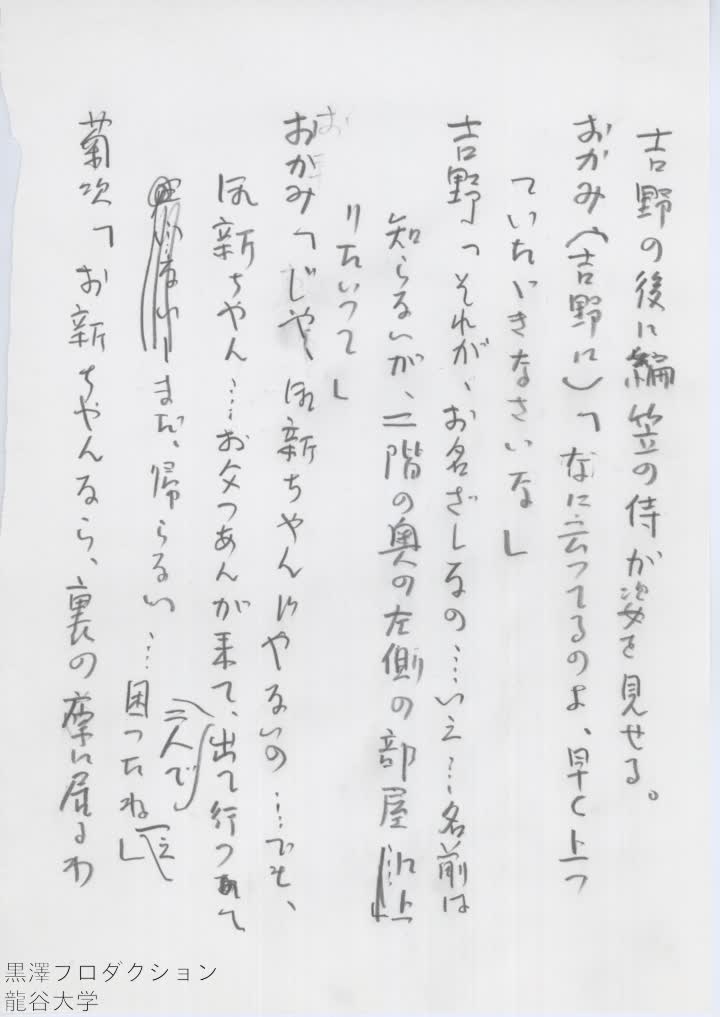 吉野の後に編笠の侍が姿を見せる。
おかみ(吉野に)「なに云つてるのよ、早く上つ
ていたゞきなさいな」
吉野「それが、お名ざしなの……いえ……名前は
知らないが、二階の奥の左側の部屋に上
りたいつて」
おかみ「じや、お新ちやんぢやないの……でも、
お新ちやん……お父つあんが来て、出て行つて
二人で
まだ、帰らない……困つたねえ」
菊次「お新ちやんなら、裏の庫に居るわ
黒澤プロダクション
龍谷大学